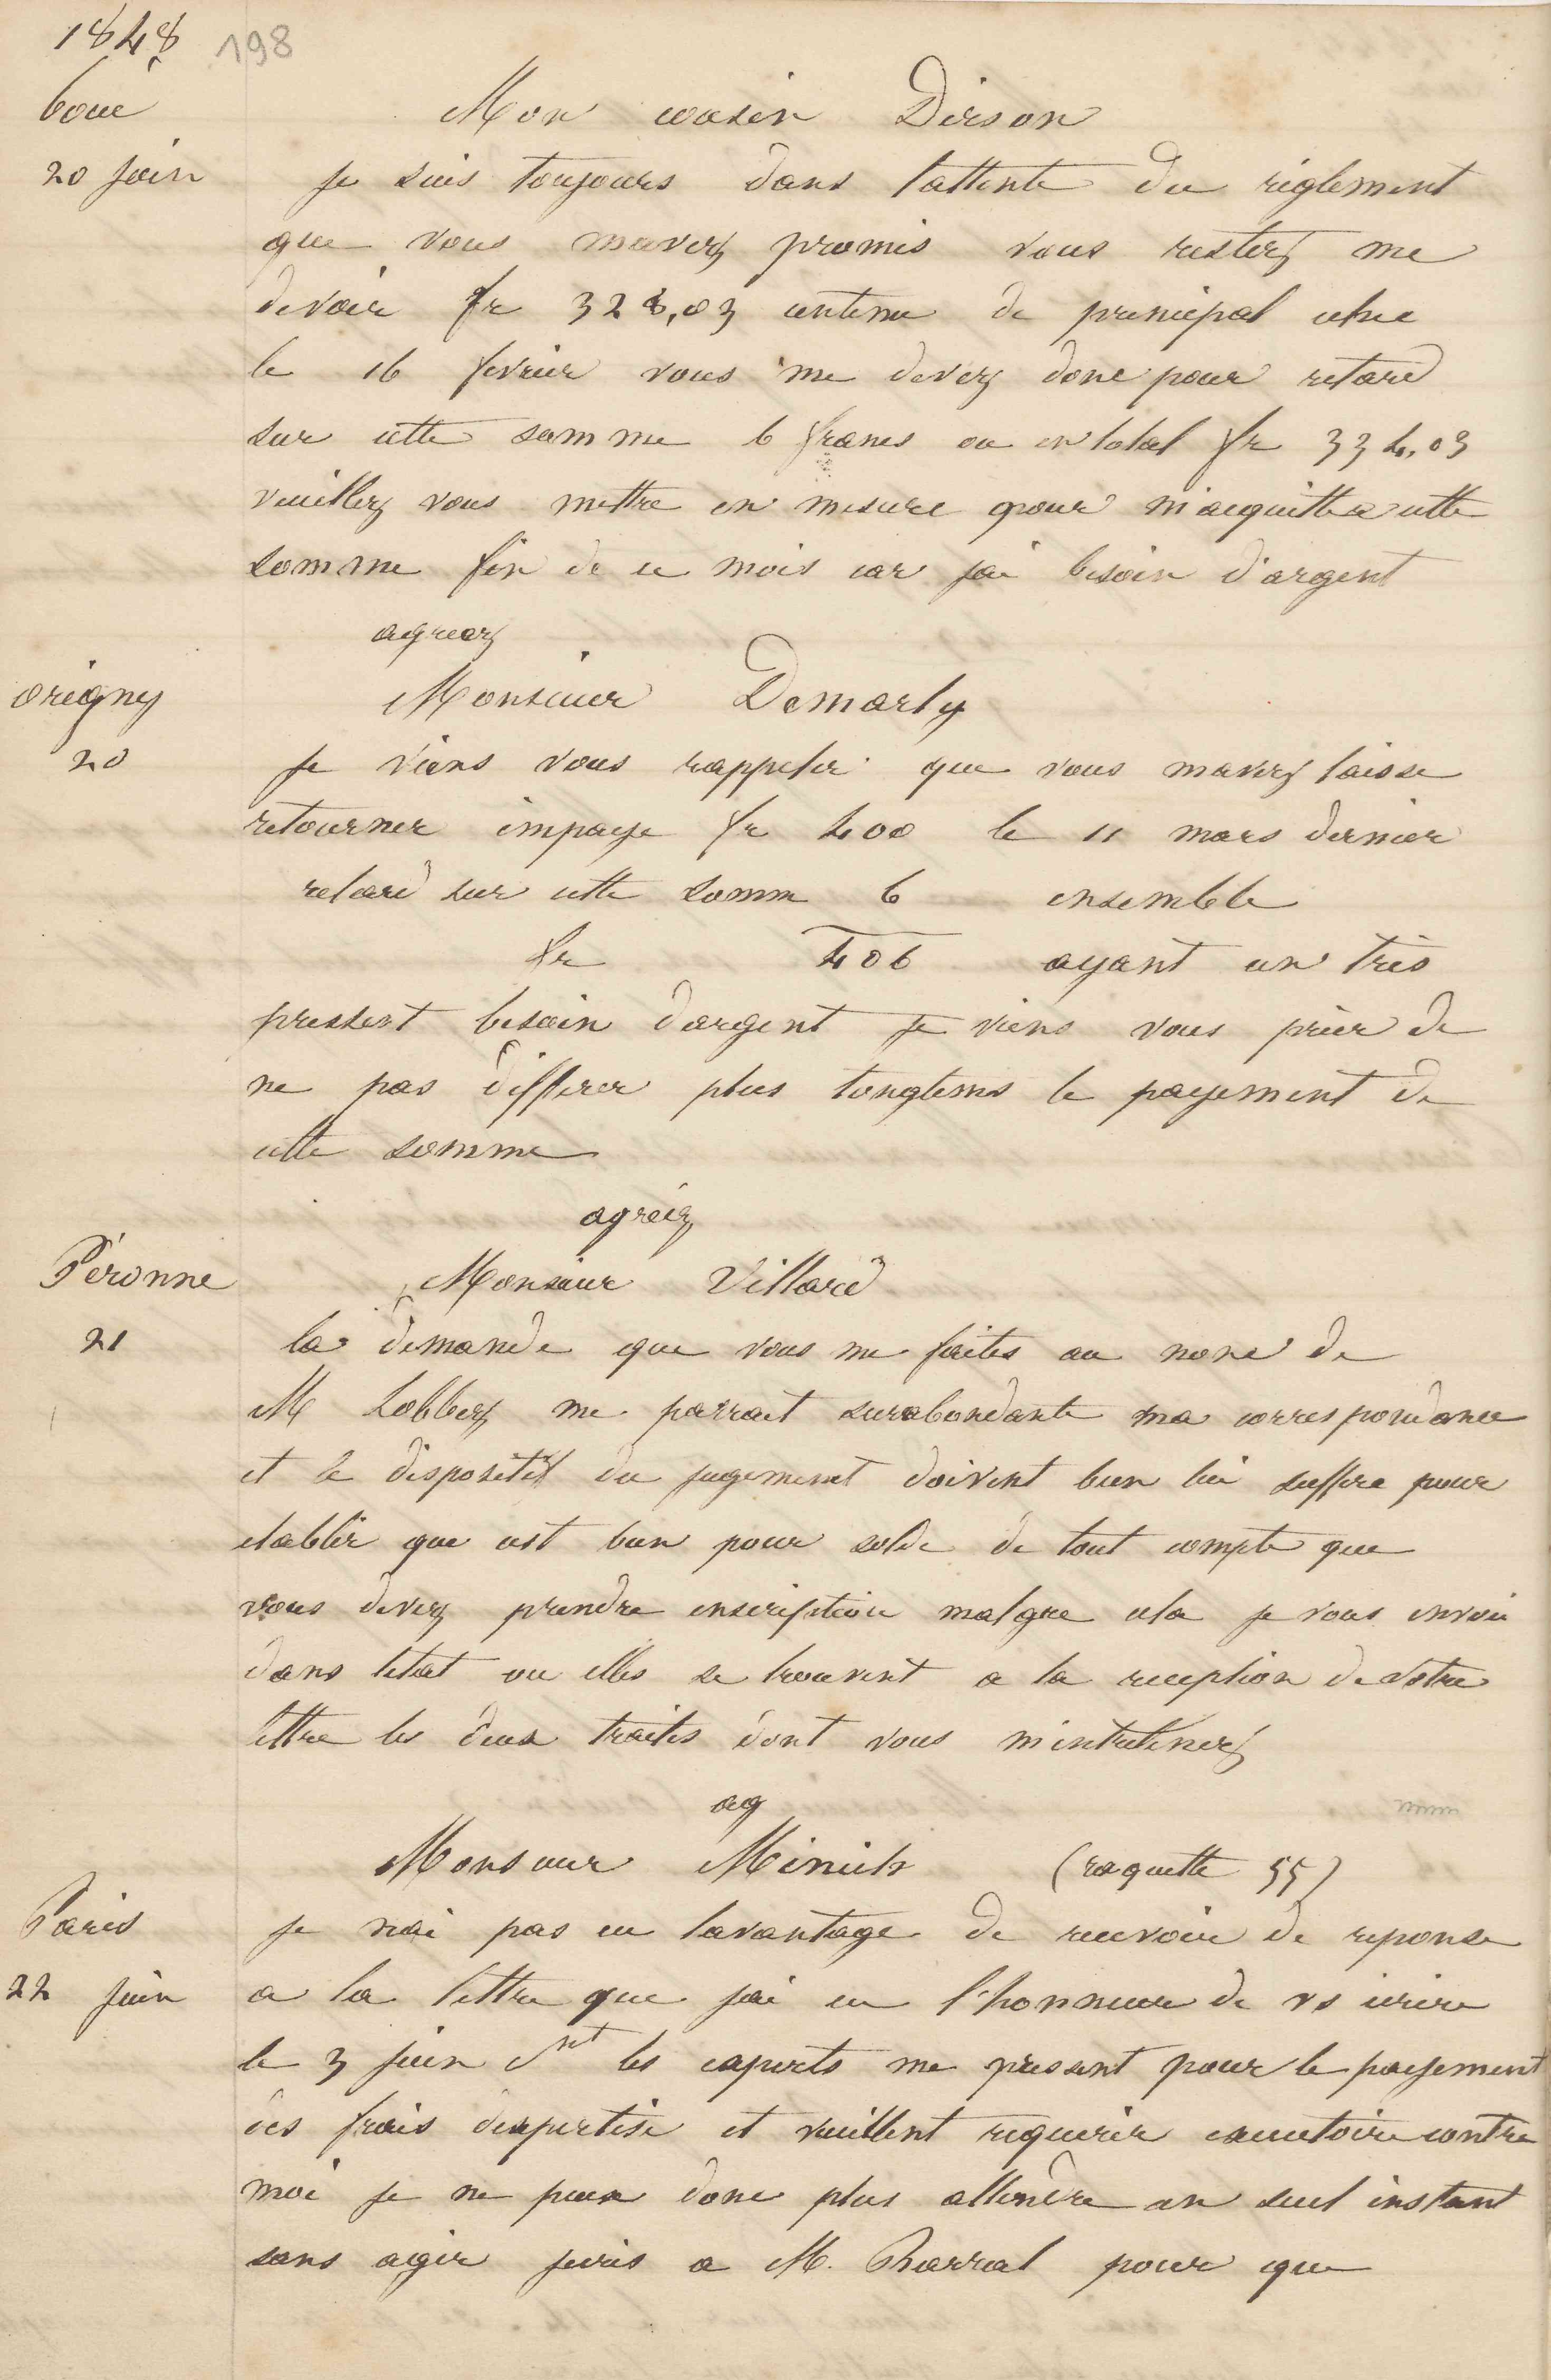 1848 198
boué
Mon cousin Dirson
20 juin
je suis toujours dans lattente du réglement
que vous mavez promis vous restez me
devoir fr 328,03 centime de principal echu
le 16 fevrier vous me devez donc pour retard
sur cette somme 6 francs ou en total fr 334,03
veuillez vous mettre en mesure pour m'acquitter cette
somme fin de ce mois car jai besoin d'argent
agreez
origny
Monsieur Demarly
20
je viens vous rappeler que vous mavez laisse
retourner impaye fr 400 le 11 mars dernier
retard sur cette somm 6 ensemble
fr 406 ayant un très
pressent besoin dargent je viens vous prier de
ne pas differer plus longtems le payement de
cette somme
agréez
Péronne
Monsieur Villard
21
la demande que vous me faites au nom de
M Lobbez me parrait surabondante ma correspondance
et le dispositif du jugement doivent bien lui suffire pour
etablir que cest bien pour solde de tout compte que
vous devez prendre inscription malgre cela je vous envoie
dans letat ou elles se trouvent a la reception de votre
lettre les deux traites dont vous mentretenez
ag
Monsieur Minich (raquette 55)
Paris
je nai pas eu lavantage de recevoir de reponse
22 juin
a la lettre que jai eu l'honneur de vs ecrire
le 3 juin ct les experts me pressent pour le payement
des frais dexpertise et veuillent requerir executoire contre
moi je ne peux donc plus attendre un seul instant
sans agir jecris a M. Barral pour que